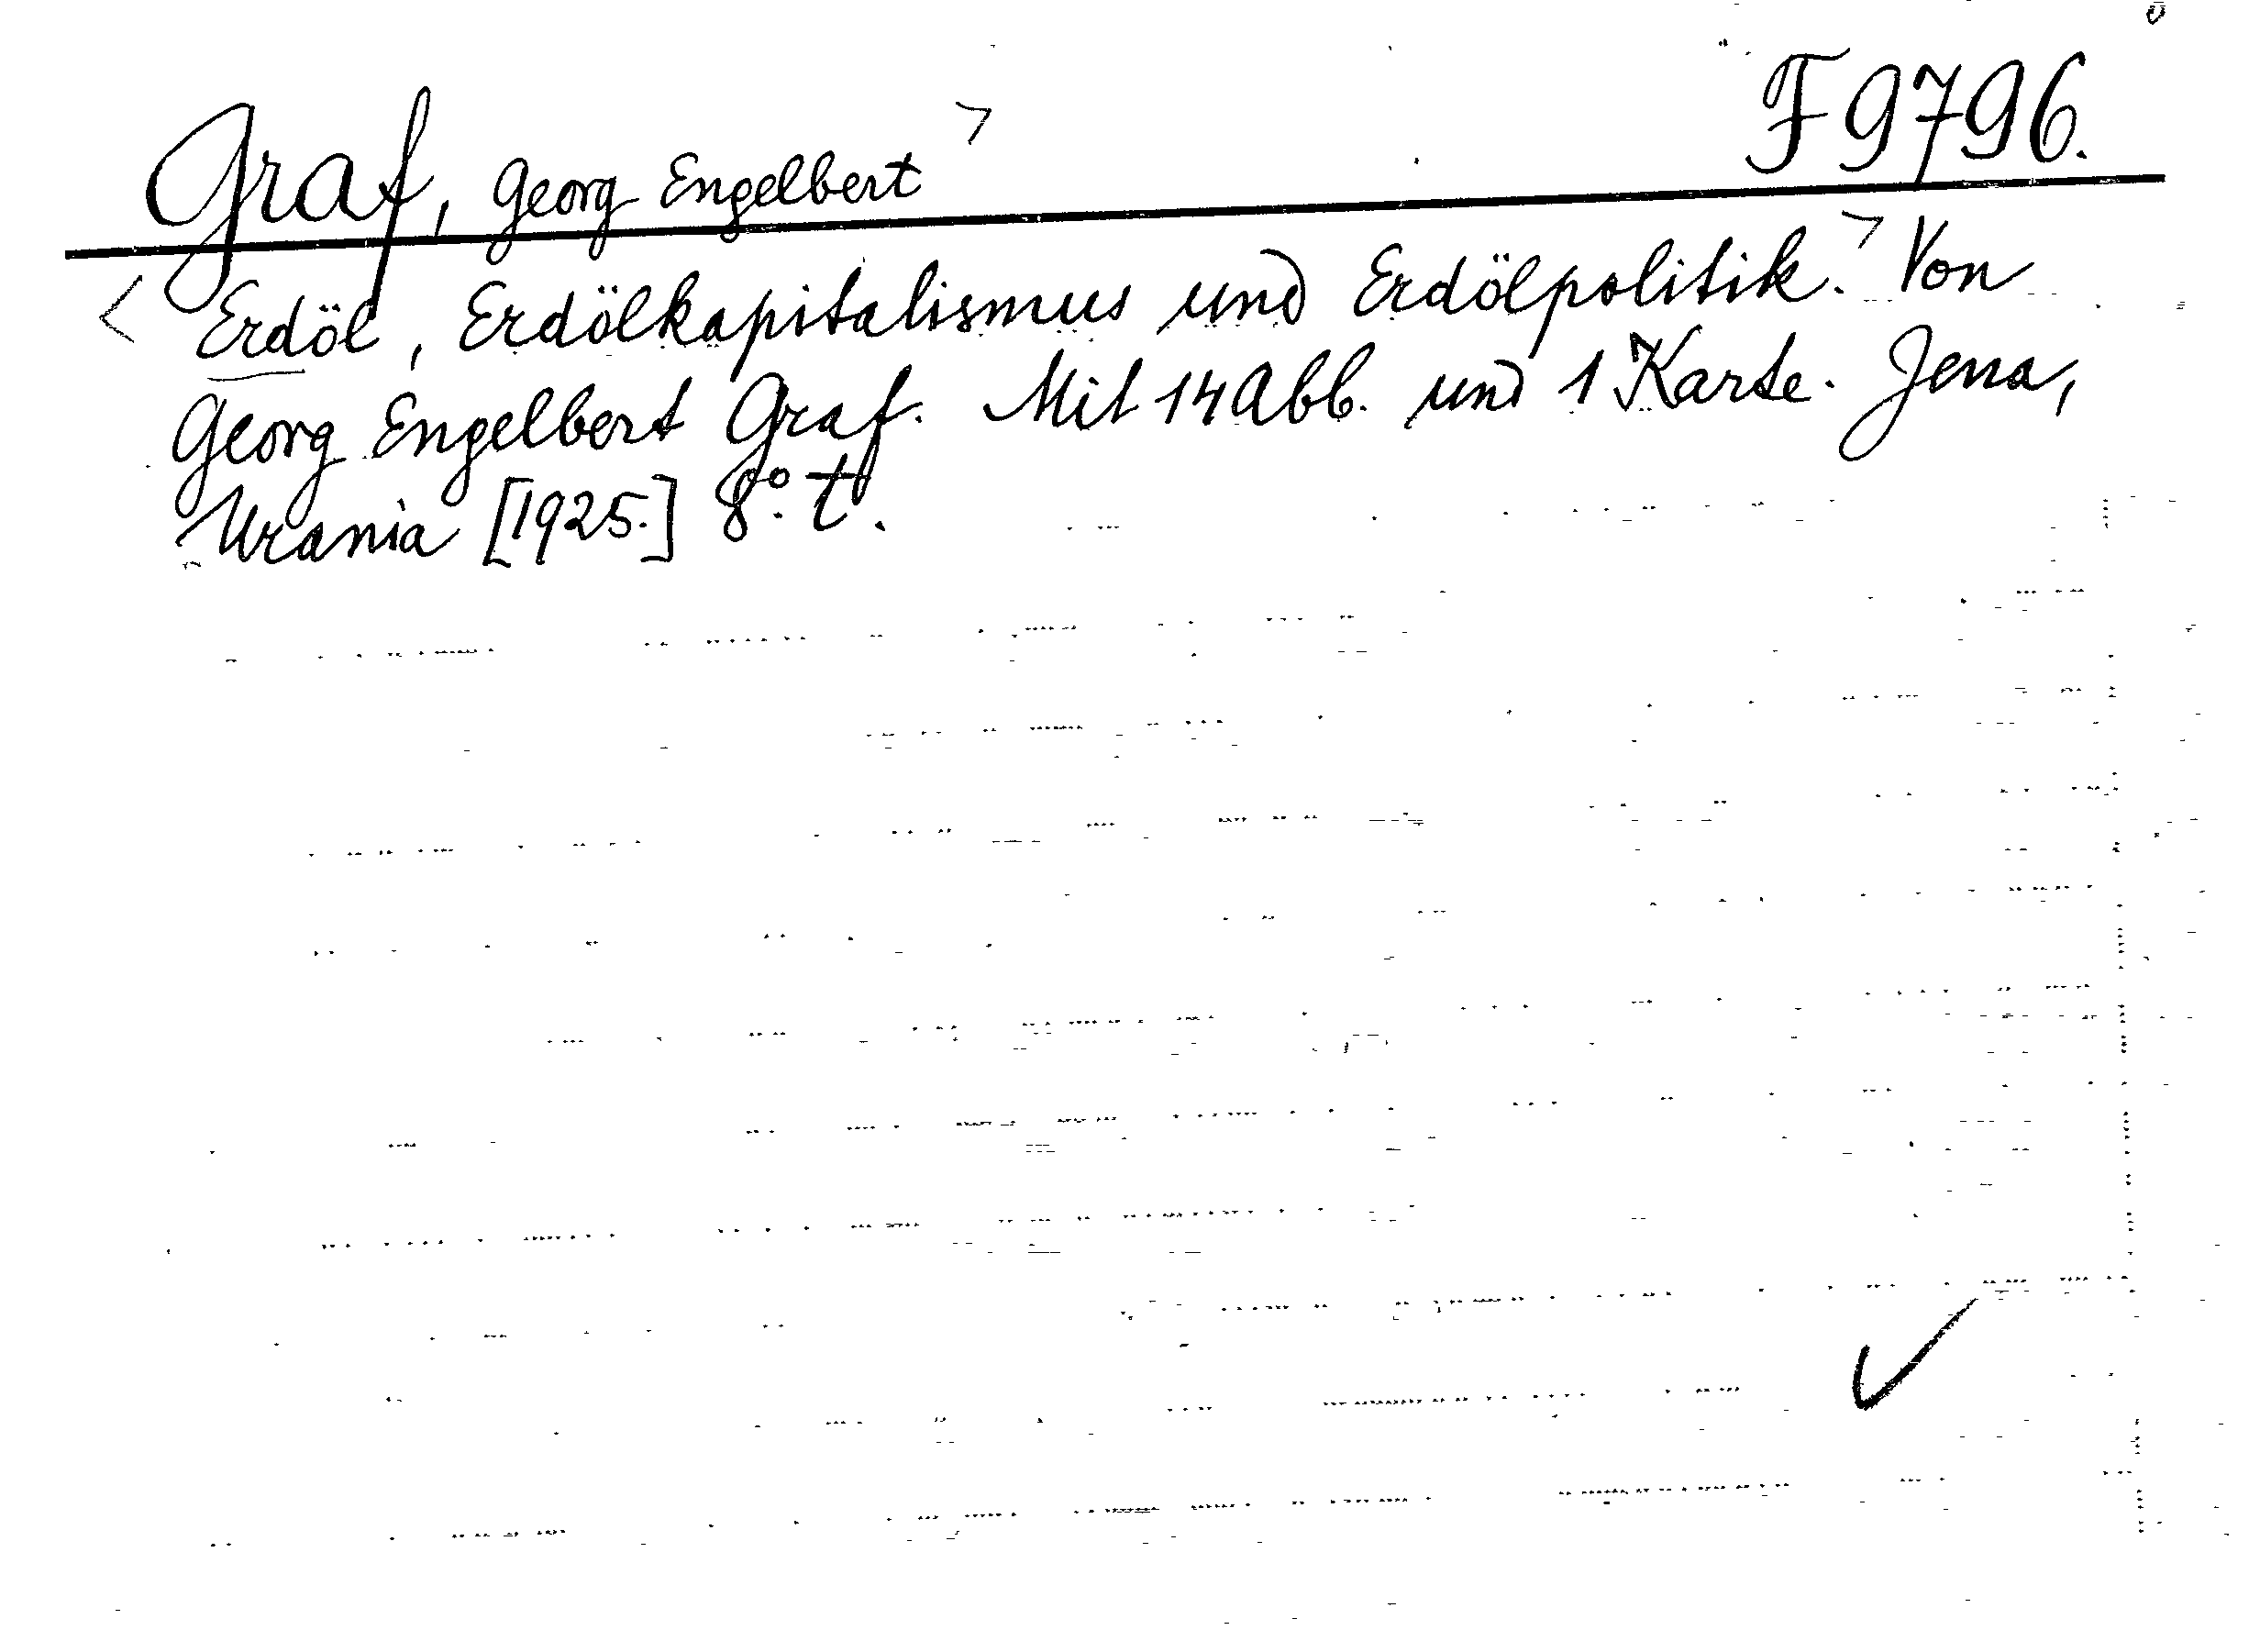 Graf, Georg Engelbert > F 9796.
< Erdöl, Erdölkapitalismus und Erdölpolitik. > Von
Georg Engelbert Graf. Mit 14 Abb. und 1 Karte. Jena,
Urania [1925.] 8°. t.